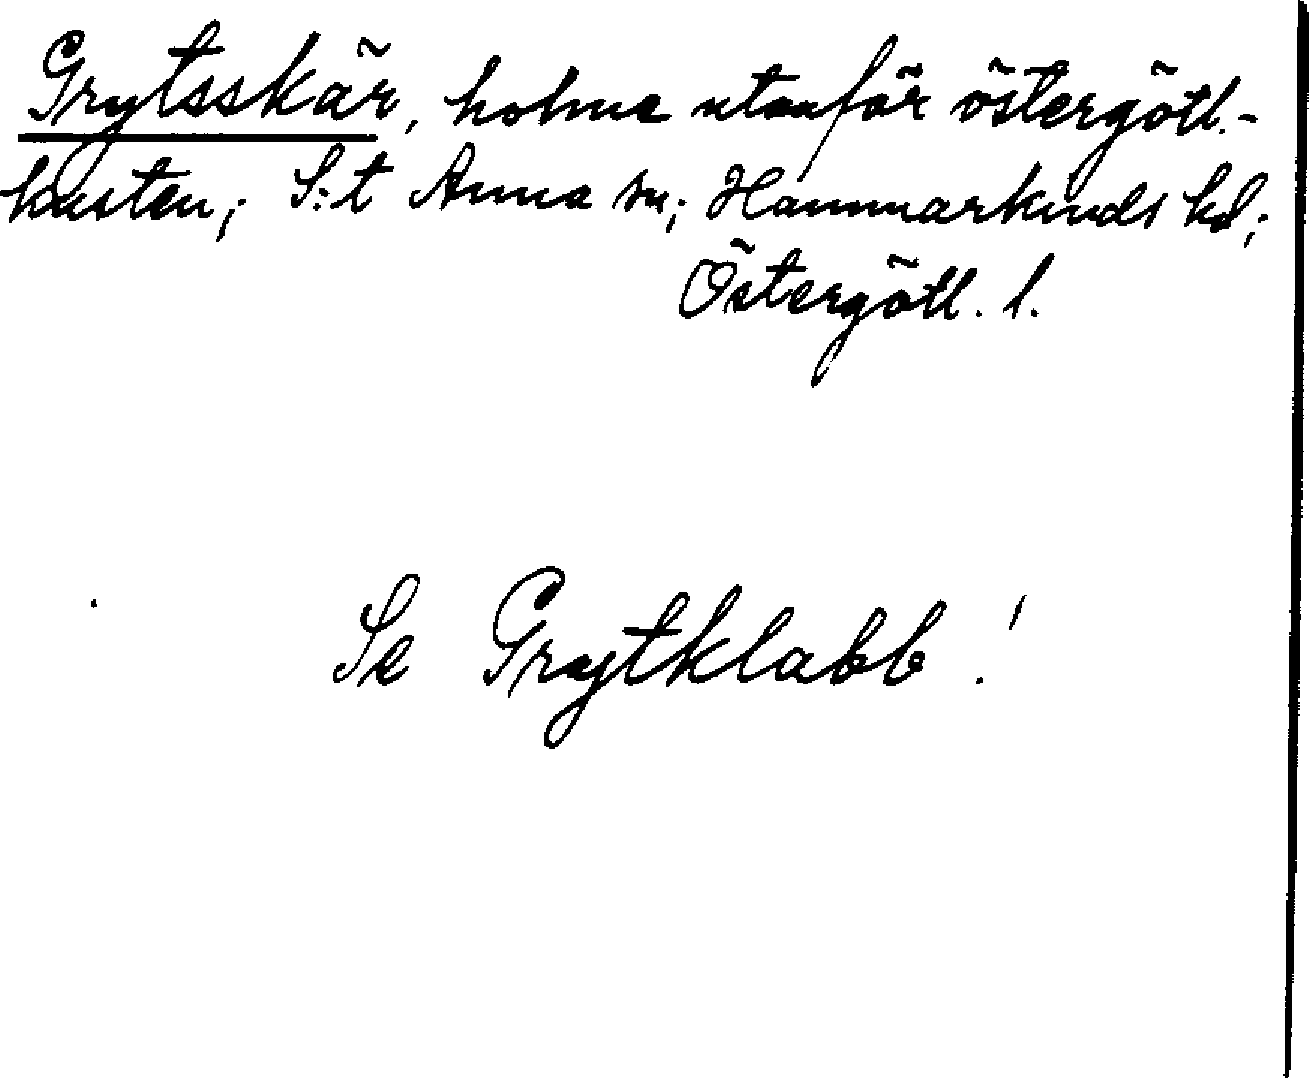 Grytsskär, holme utanför östergötl.-
kusten; S:t Anna sn; Hammarkinds hd;
Östergötl. l.
Se Grytklabb!